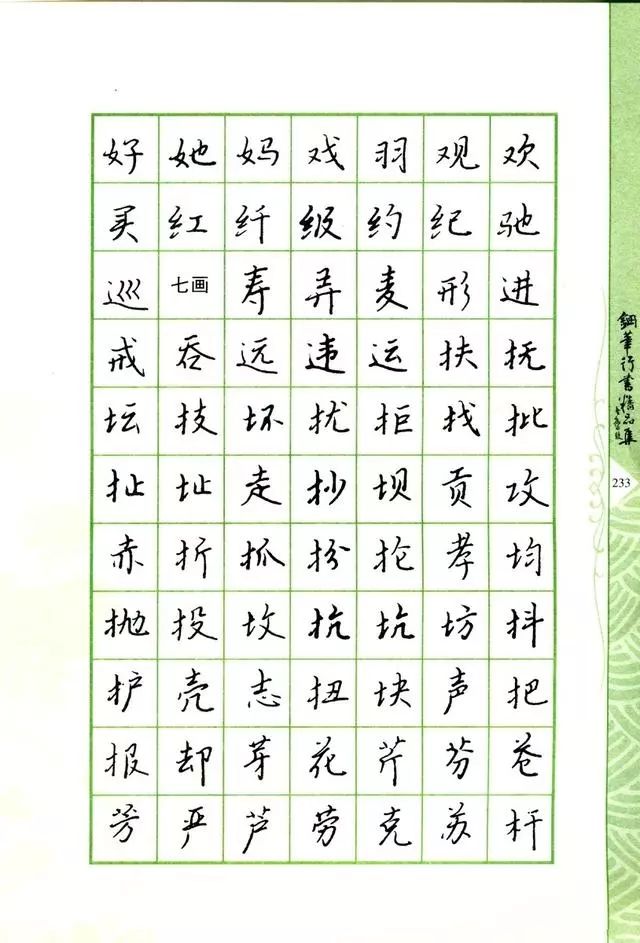 好她妈戏羽观欢
买红纤级约纪驰
巡七画寿弄麦形进
戒吞远违运扶抚
坛技坏扰拒找批
扯址走抄坝贡攻
赤折抓扮抡孝均
抛投坟抗坑坊抖
护壳志扭块声把
报却芽花芹芬苍
芳严芦劳克苏杆
钢笔行书精品集
233